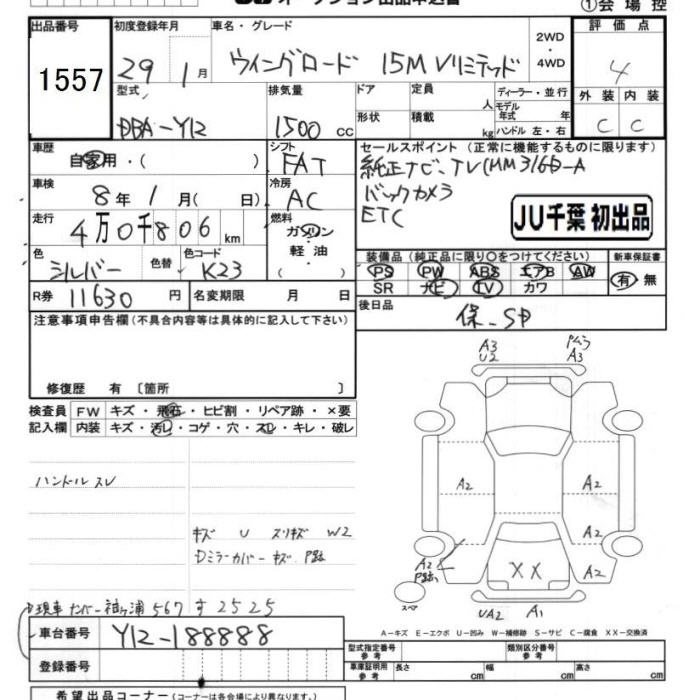 ①会場控
出品番号 初度登録年月 車名・グレード 2WD・4WD 評価点
1557 29 1月 ウイングロード 15M Vリミテッド 4
型式 排気量 ドア 定員 人 ディーラー・並行 外装 内装
DBA-Y12 1500 CC 形状 積載 kg モデル年式 年 ハンドル 左・右 C C
車歴 自家用・( ) シフト FAT セールスポイント(正常に機能するものに限ります)
純正ナビ、TV(MM316D-A
車検 8年1月( 日) 冷房 AC バックカメラ
ETC
JU千葉 初出品
走行 4万0千806km 燃料 ガソリン 軽油 ( )
色 シルバー 色替 色コード K23
装備品(純正品に限り○をつけてください) 新車保証書
PS PW ABS エアB AW 有・無
SR ナビ TV カワ
R券 11630円 名変期限 月 日 後日品 保、SD
注意事項申告欄(不具合内容等は具体的に記入して下さい)
修復歴 有 〔箇所 〕
検査員 FW キズ・飛石・ヒビ割・リペア跡・×要
記入欄 内装 キズ・汚レ・コゲ・穴・スレ・キレ・破レ
A3 U2 A3
ハンドルスレ
A2 A2
キズ U スリキズ W2
A2
ドミラーカバーキズ
A2 XX A2
スペア
UA2 A1
現車ナンバー袖ヶ浦 567 す 2525
A−キズ E−エクボ U−凹み W−補修跡 S−サビ C−腐食 XX−交換済
車台番号 Y12-188888 型式指定番号 参考 類別区分番号 参考
登録番号 車庫証明用 参考 長さ cm 幅 cm 高さ cm
希望出品コーナー(コーナーは各会場により異なります。)